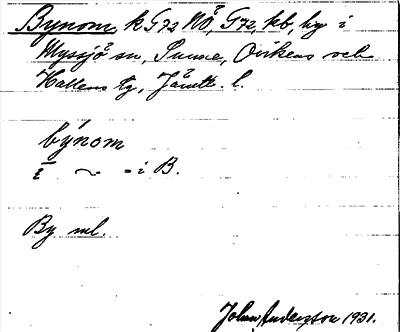 Bynom k G72 NÖ, G72, kb, by i
Myssjö sn, Sunne, Ovikens och
Hallens tg, Jämtl. l.
býnom
ī ~ = i B.
By ml.
John Anderzon 1931.